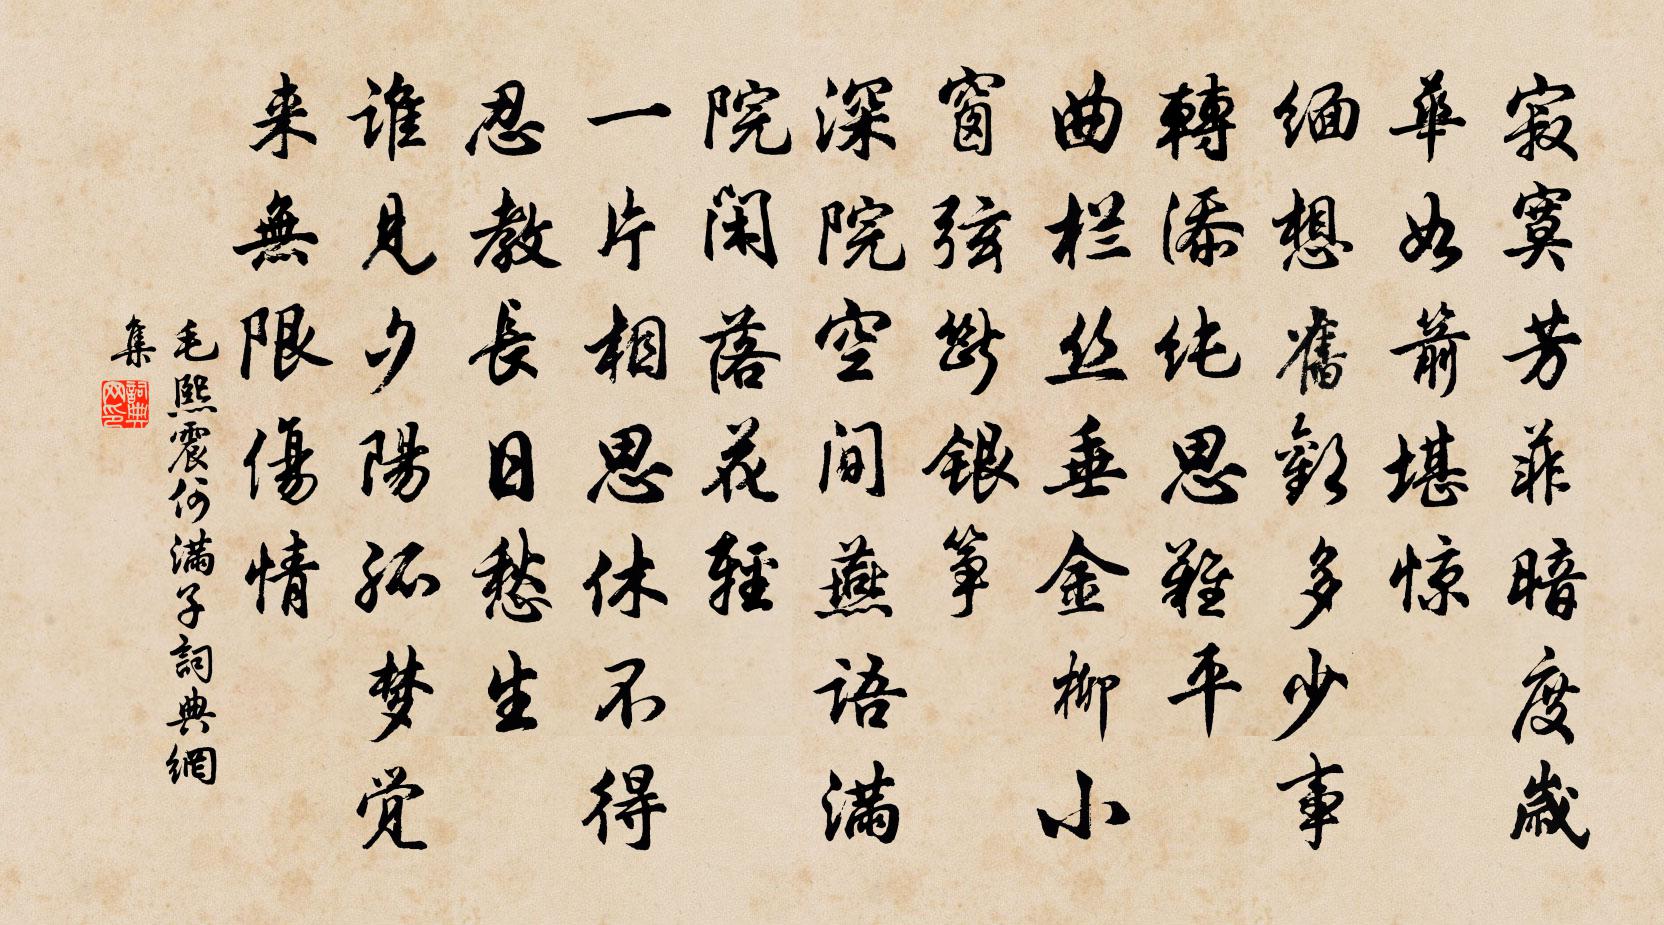 寂寞芳菲暗度歲
華如箭堪惊
缅想舊歡多少事
轉添纯思難平
曲栏丝垂金柳小
窗弦斷銀筝
深院空间燕語满
院闲落花輕
一片相思休不得
忍教長日愁生
谁見夕陽孤梦觉
来無限傷情
毛熙震何满子詞典網
集
詞典网印